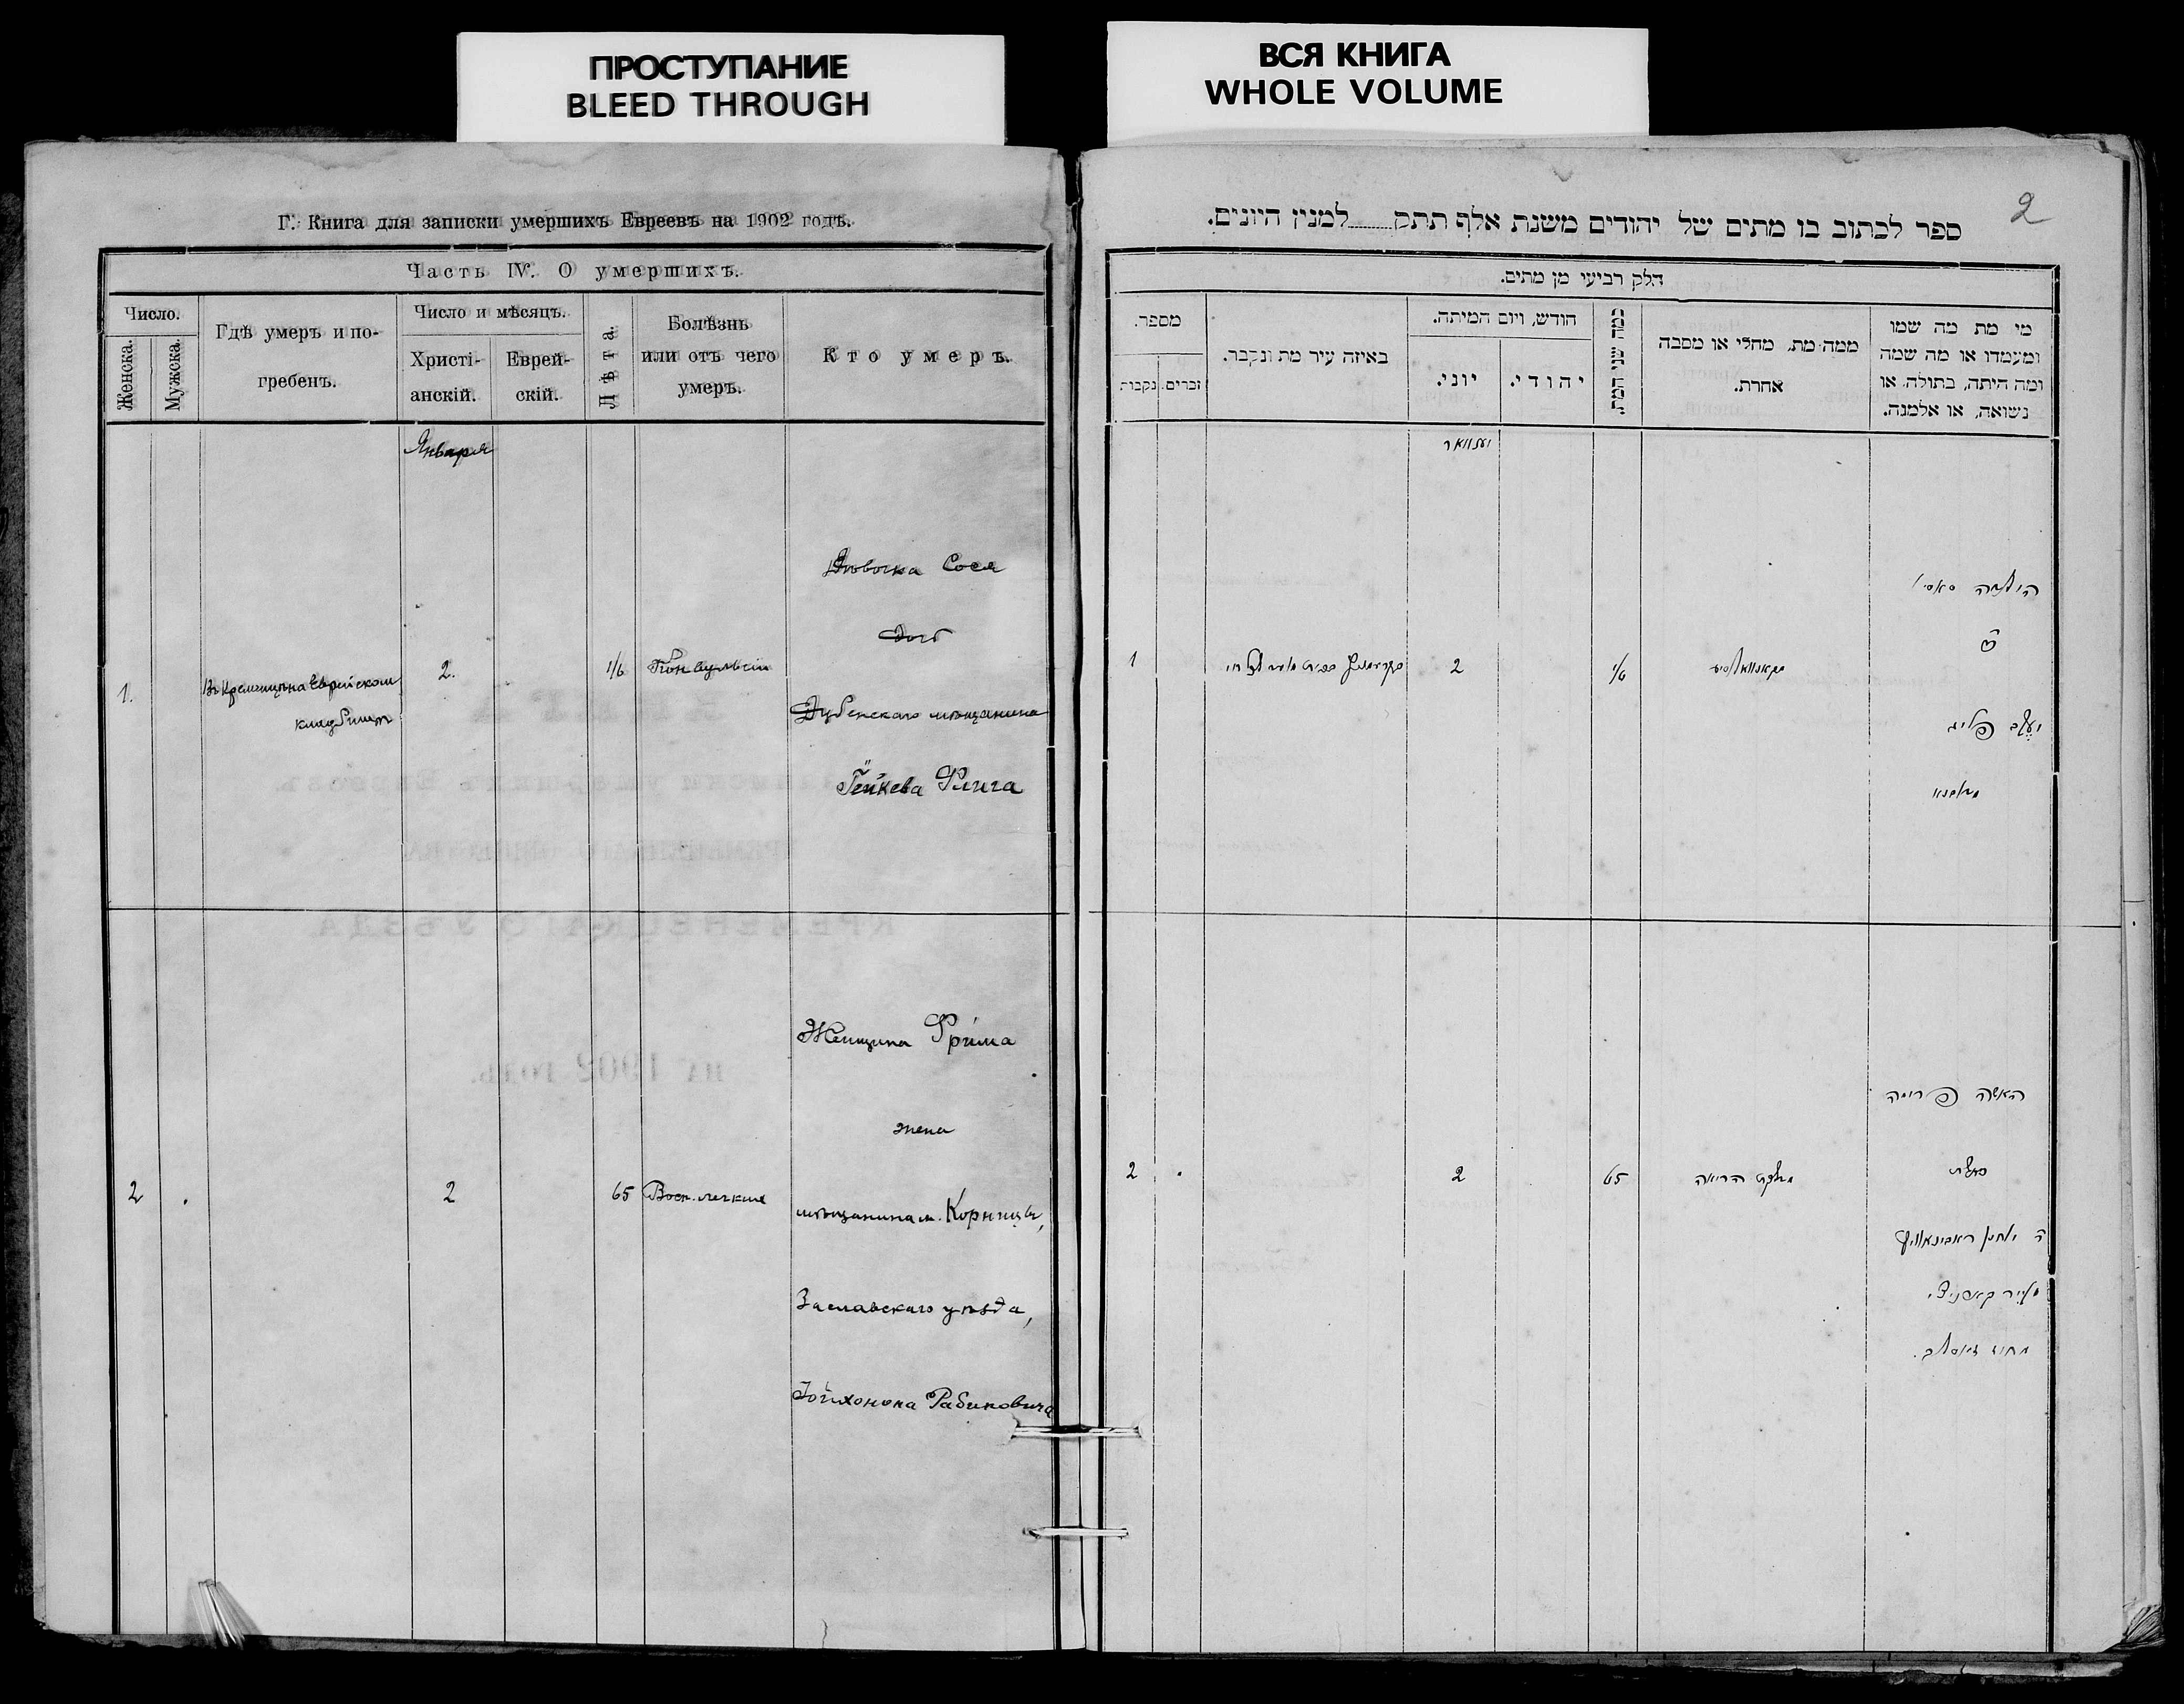 ПРОСТУПАНИЕ
BLEED THROUGH
ВСЯ КНИГА
WHOLE VOLUME
Г. Книга для записки умершихъ Евреевъ на 1902 годъ.
Часть IV. О умершихъ.
Число.
Женска.
Мужска.
Гдѣ умеръ и по-
гребенъ.
Число и мѣсяцъ.
Христі-
анскій.
Еврей-
скій.
Лѣта.
Болѣзнь
или отъ чего
умеръ.
Кто умеръ.
Января
1.
Въ Кременцѣ на Еврейском
кладбищѣ
2.
1/6
Конвульсіи
Дѣвочка Сося
дочь
Дубенскаго мѣщанина
Флига
2
2
65
Восп. легкихъ
Женщина Фрима
жена
мѣщанина м. Корницы,
Заславскаго уѣзда,
Іойхонона Рабиновича
2
ספר לכתוב בו מתים של יהודים משנת אלף תתק למנין היונים.
חלק רביעי מן מתים.
מספר.
נקבות
זכרים.
באיזה עיר מת ונקבר.
חודש, ויום המיתה.
יוני.
יהודי.
כמה שני המת.
ממה מת, מחלי או מסבה
אחרת.
מי מת מה שמו
ומעמדו או מה שמה
ומה היתה, בתולה, או
נשואה, או אלמנה.
יענוואר
1
2
1/6
קאנוואלסיע
הילדה סאסי
יעקב פליג
2
2
65
דלקת הריאה
האשה פרימה
ה יוחנן ראבינאוויץ
מעיר קארניצי
מחוז זאסלב.